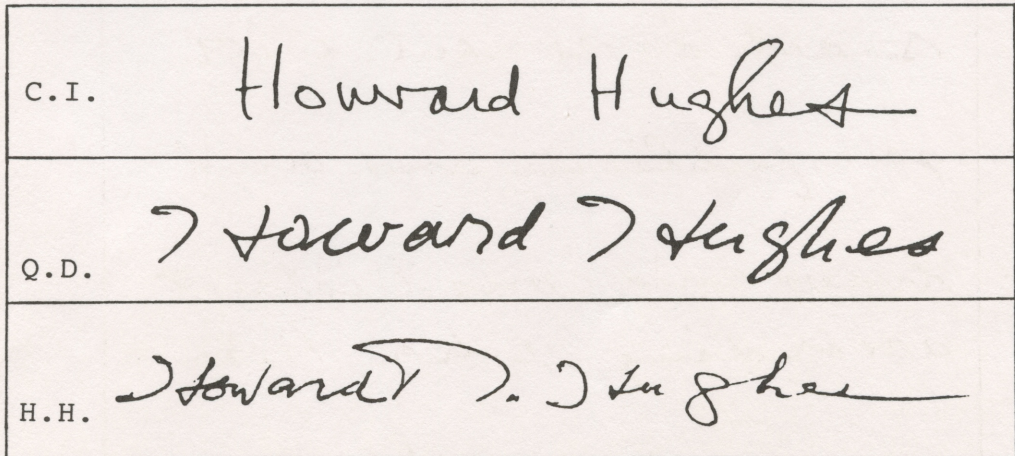 C.I. Howard Hughes
Q.D. Howard Hughes
H.H. Howard R. Hughes